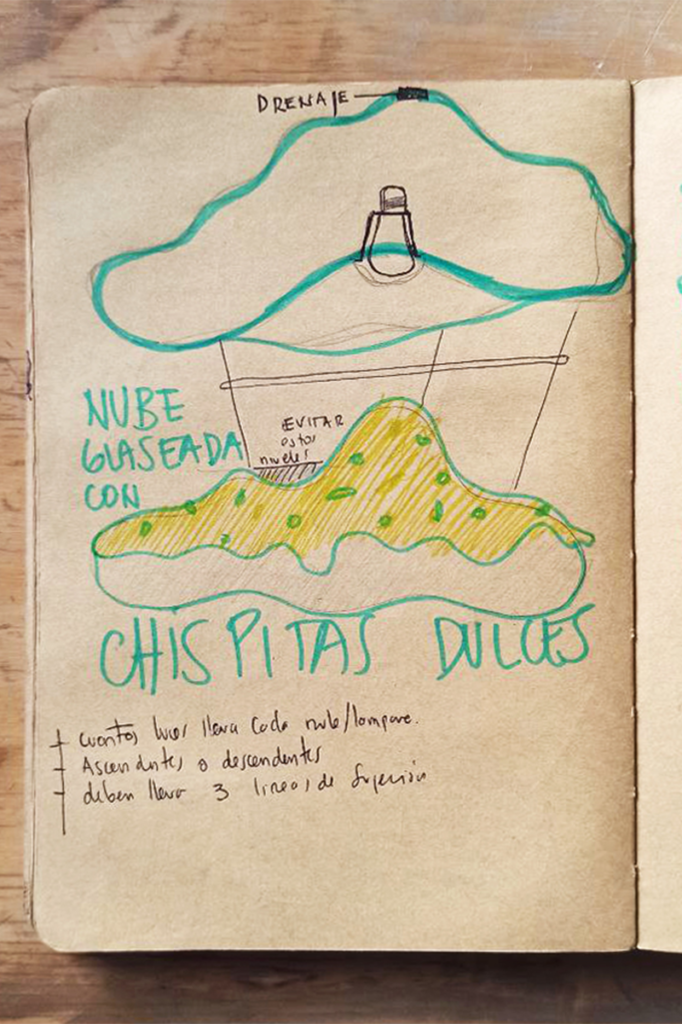 DRENAJE
NUBE
GLASEADA
CON
EVITAR
estos
niveles
CHISPITAS DULCES
cuantas luces lleva cada nube/lampara.
Ascendentes o descendentes
deben llevar 3 lineas de sujecion